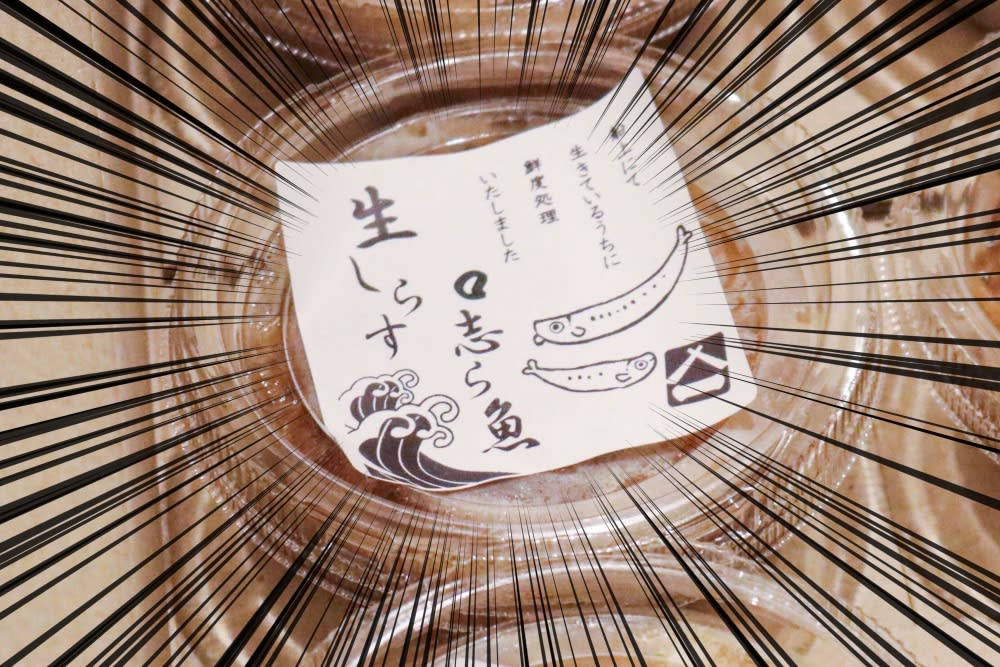 生きているうちに
鮮度処理
いたしました
口志ら魚
生しらす